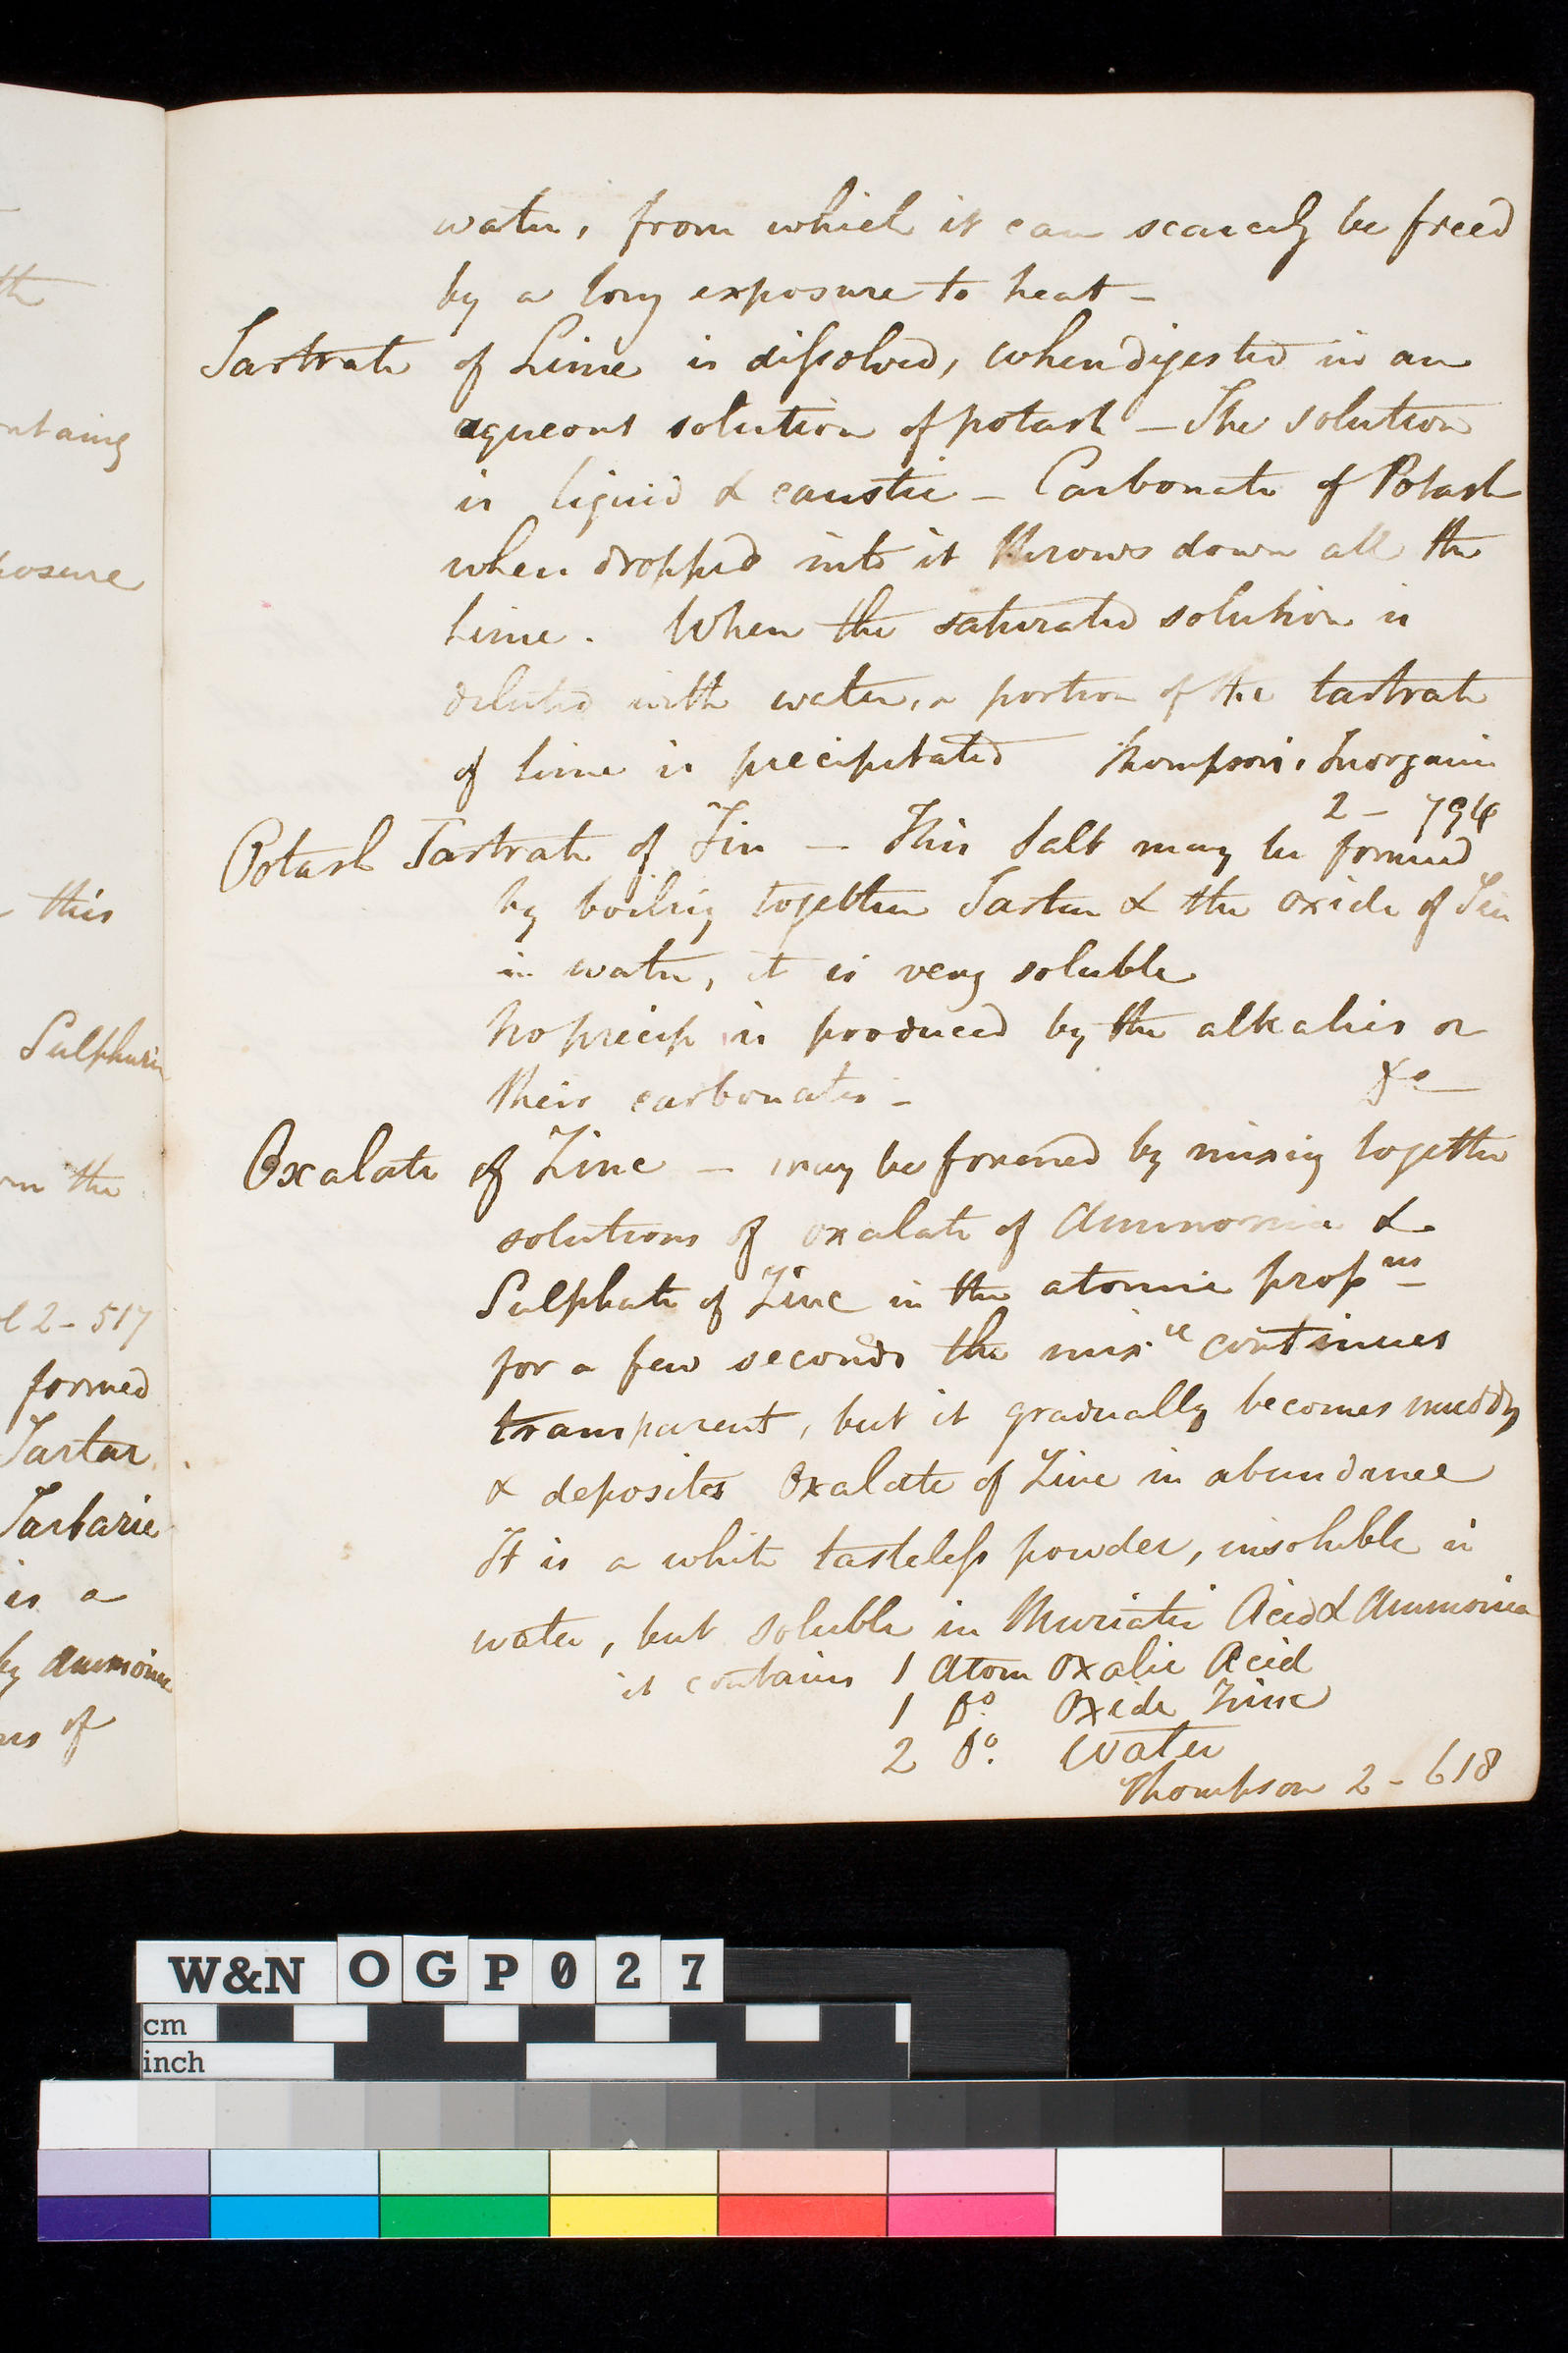 th
ntaing
posure
this
Sulphuric
m the
l 2 - 517
formed
Tartar.
Tartaric
is a
by ammonia
ns of
water, from which it can scarcely be freed
by a long exposure to heat -
Tartrate of Lime is dissolved, when digested in an
aqueous solution of potash - The solution
is liquid & caustic - Carbonate of Potash
when dropped into it throws down all the
lime. When the saturated solution is
diluted with water, a portion of the tartrate
of lime is precipitated Thompson's Inorganic
2 - 794
Potash Tartrate of Tin - This Salt may be formed
by boiling together Tartar & the oxide of Tin
in water, it is very soluble
No precip is produced by the alkalies or
their carbonates -
Oxalate of Zinc - may be formed by mixing together
solutions of oxalate of Ammonia &
Sulphate of Zinc in the atomic propns
for a few seconds the mixre continues
transparent, but it gradually becomes muddy
& deposites Oxalate of Zinc in abundance
It is a white tasteless powder, insoluble in
water, but soluble in Muriatic Acid & Ammonia
it contains 1 Atom Oxalic Acid
1 Do. Oxide Zinc
2 Do. Water
Thompson 2 - 618
W&N OGP027
cm
inch